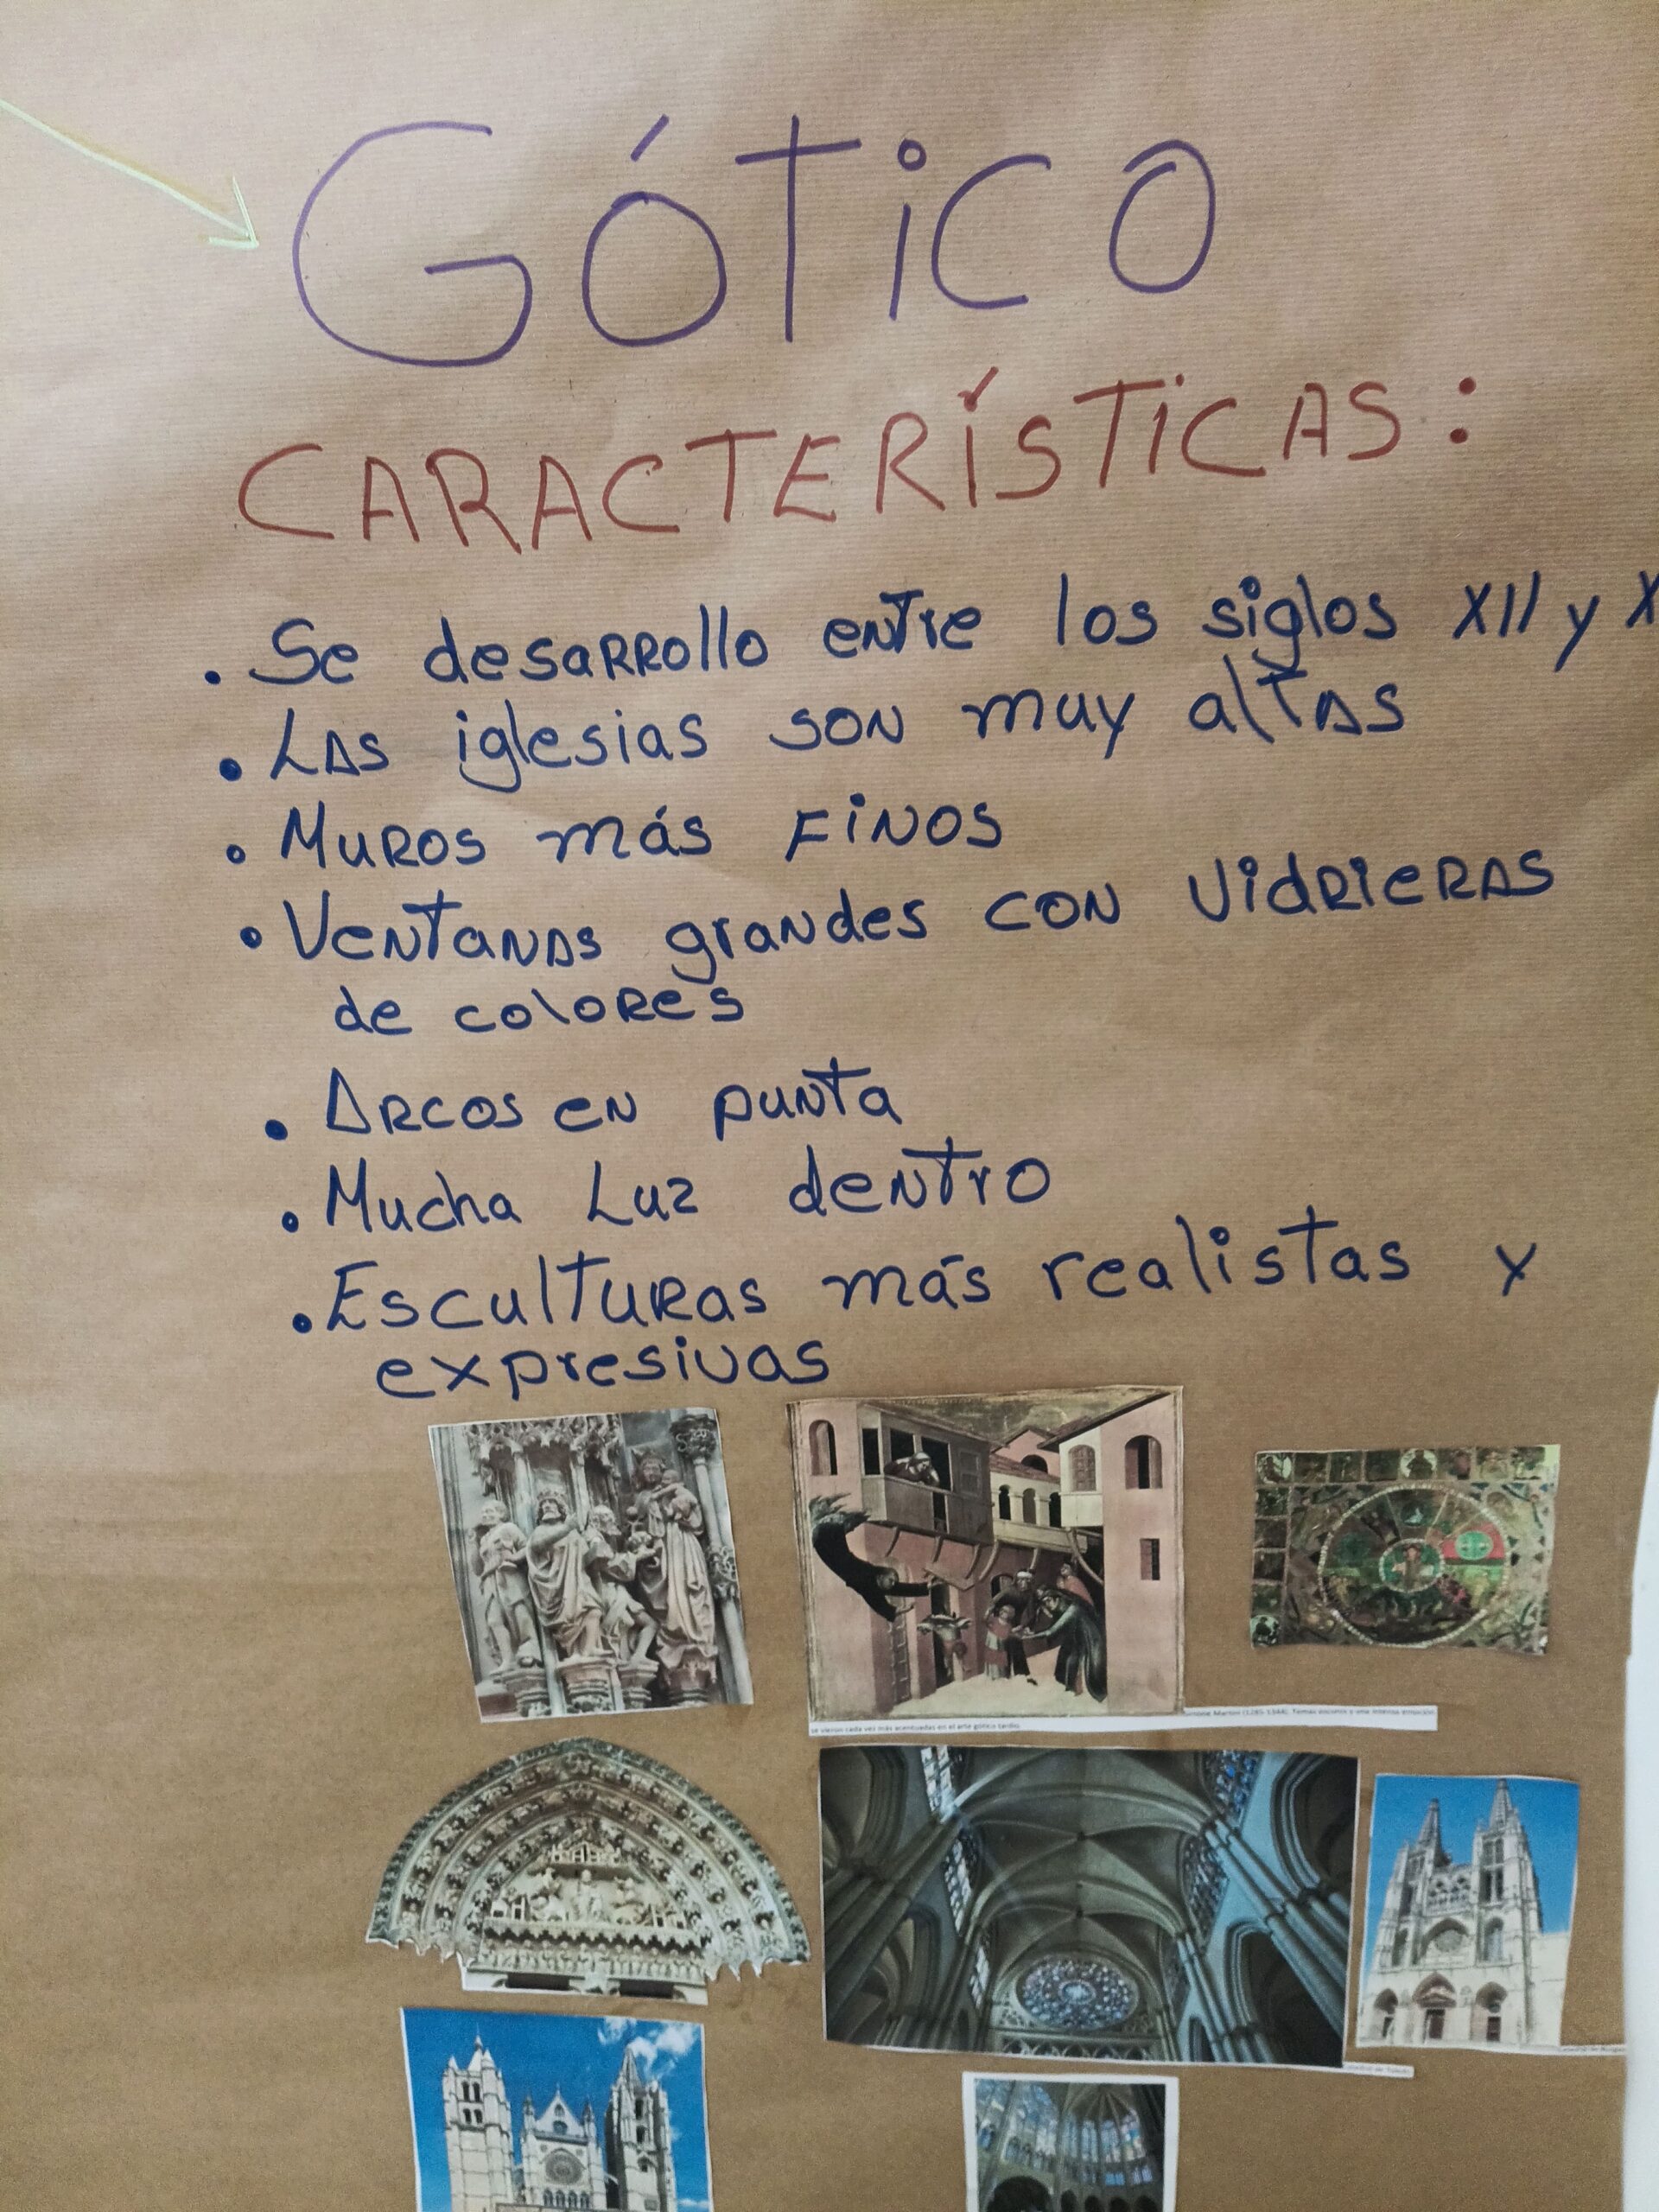 GÓTiCO
CARACTERÍSTiCAS:
• Se desarrollo entre los siglos XII y X
• Las iglesias son muy altas
• Muros más finos
• Ventanas grandes con vidrieras
de colores
• Arcos en punta
• Mucha Luz dentro
• Esculturas más realistas y
expresivas
Simone Martini (1285-1344). Temas oscuros y una intensa emoción
se vieron cada vez más acentuadas en el arte gótico tardío.
Catedral de Burgos
Catedral de Toledo